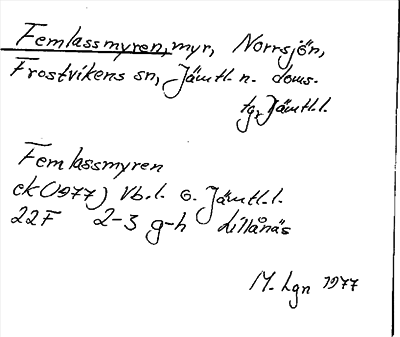 Femlassmyren, myr, Norrsjön,
Frostvikens sn, Jämtl. n. doms.
tg, Jämtl.l.
Femlassmyren
ek (1977) Vb.l. o. Jämtl.l.
22F 2-3 g-h Lillånäs
M. Lgn 1977